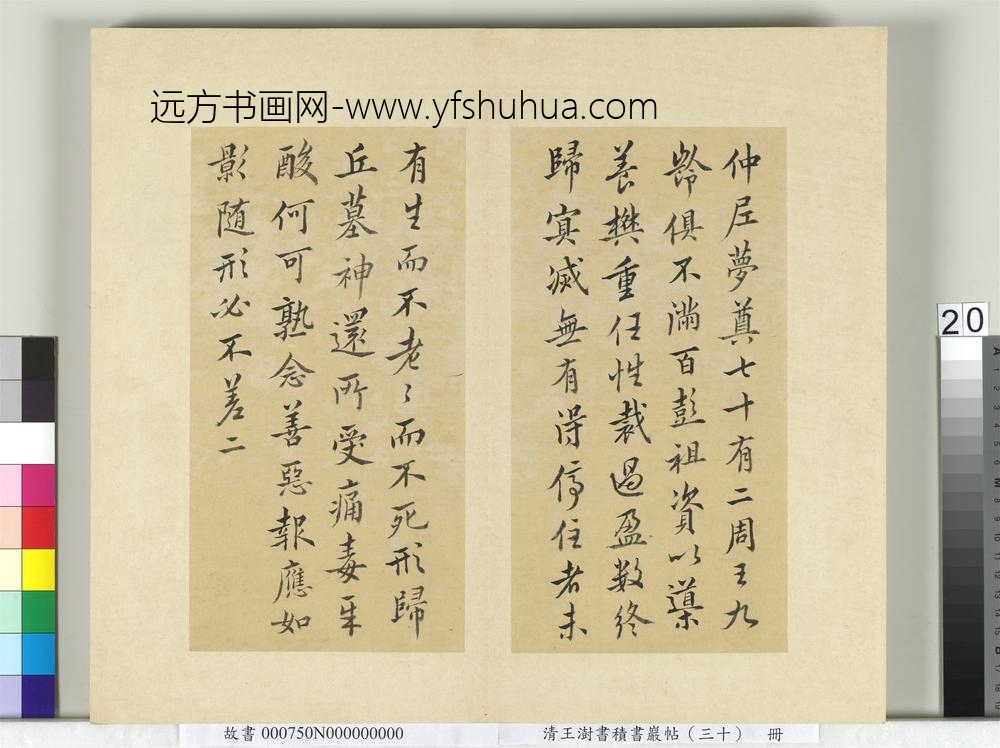 远方书画网-www.yfshuhua.com
仲尼夢奠七十有二周王九
齡俱不滿百彭祖資以導
養樊重任性裁過盈數終
歸寂滅無有得停住者未
有生而不老〻而不死形歸
丘墓神還所受痛毒辛
酸何可熟念善惡報應如
影随形必不差二
20
故書 000750N000000000
清王澍書積書巖帖（三十） 冊